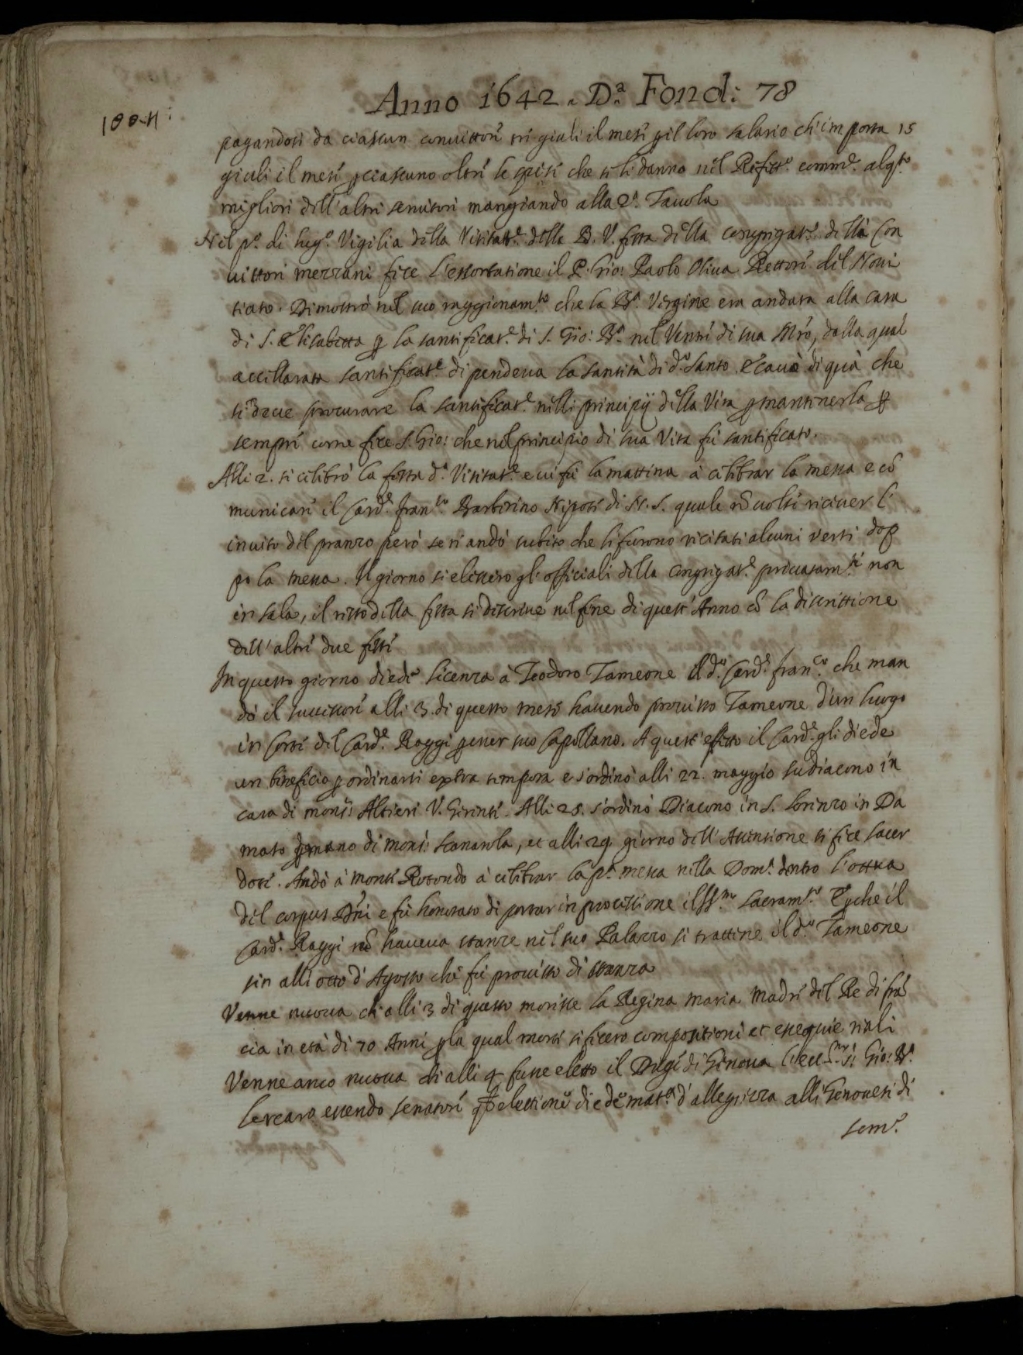 Anno 1642. Da. Fond: 78
pagandosi da ciascun convittore tre giulii il mese p il loro salario ch'importa 15
giulii il mese p ciascuno oltre le spese che se li danno nel Refett.o comm.e alq.to
migliori dell'altri servitori mangiando alla 2.a Tavola
Nel p.o di lug.o Vigilia della Visitat.e della B. V. festa della congregat.e delli Con
vittori mezzani fece l'essortatione il P. Gio: Paolo Oliva Rettore del Novi
tiato. Dimostrò nel suo raggionam.to che la B.a Vergine era andata alla casa
di S. Elisabetta p la santificat.e di S. Gio: B.a nel Ventre di sua Mre, dalla qual
accellarata santificat.e dipendeva la santità di d.o Santo. E cavò di quà che
si deve procurare la santificat.e nelli principij della Vita p mantenerla p
sempre come fece S. Gio: che nel principio di sua Vita fù santificato.
Alli 2. si celibrò la festa d.a Visitat.e e vi fù la mattina à celibrar la messa e cō
municare il Card.e Fran.co Barberino Nipote di N. S. quale nō volse ricever l'
invito del pranzo però se ne andò subito che li furono recitati alcuni versi dop
po la messa. Il giorno si elessero gl'officiali della congregat.e privatam.te non
in sala, il resto della festa si descrive nel fine di quest'Anno cō la discrittione
dell'altre due feste
In questo giorno diede licenza à Teodoro Tameone il d.o Card.e Fran.co che man
dò il successore alli 3. di questo mese havendo provisto Tameone d'un luogo
in Corte del Card.e Raggi p esser suo Capellano. A quest'effetto il Card.e gli diede
un beneficio p ordinarsi extra tempora e s'ordinò alli 22. maggio sudiacono in
casa di mons: Altieri V. Gerente. Alli 25. s'ordinò Diacono in S. Lorenzo in Da
maso p mano di mons: Scanarola, et alli 29 giorno dell'Ascensione si fece sacer
dote. Andò à monte Rotondo à celibrar la p.a messa nella Dom.a dentro l'ottava
del corpus Dñi e fù honorato di portar in processione il SS.mo Sacram.to E pche il
Card.e Raggi nō haveva stanze nel suo Palazzo si trattene il d.o Tameone
sin alli otto d'Agosto che fù provisto di stanza
Venne nuova ch'alli 3 di questo morisse la Regina Maria Madre del Re di frā
cia in età di 70 Anni p la qual morte si fecero compositioni et essequie reali
Venne anco nuova ch'alli 4 fusse eletto il Duge di Genova l'ecc.mo S: Gio: B.a
Lercaro essendo senatore q.a elettione diede mat.a d'allegrezza alli Genovesi di
sem.